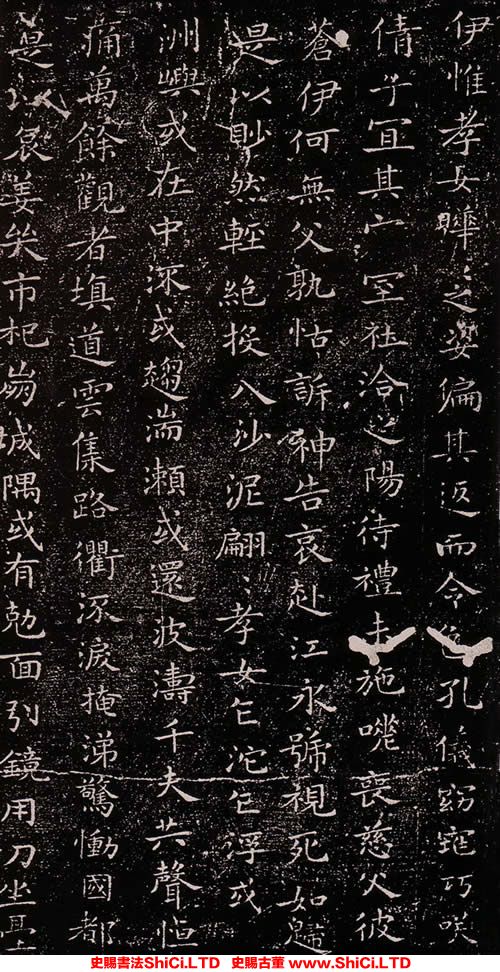 伊惟孝女曄〻之姿偏其返而令色孔儀窈窕巧咲
倩乎宜其室在洽之陽待禮未施嗟喪慈父彼
蒼伊何無父孰怙訴神告哀赴江永號視死如歸
是以眇然輕絕投入沙泥翩〻孝女乍沈乍浮或
洲嶼或在中流或趨湍瀨或還波濤千夫共聲悼
痛萬餘觀者填道雲集路衢流淚掩涕驚慟國都
是以哀姜哭市杞崩城隅或有勀面引鏡用刀坐臺
史賜書法ShiCi.LTD 史賜古董 www.ShiCi.LTD